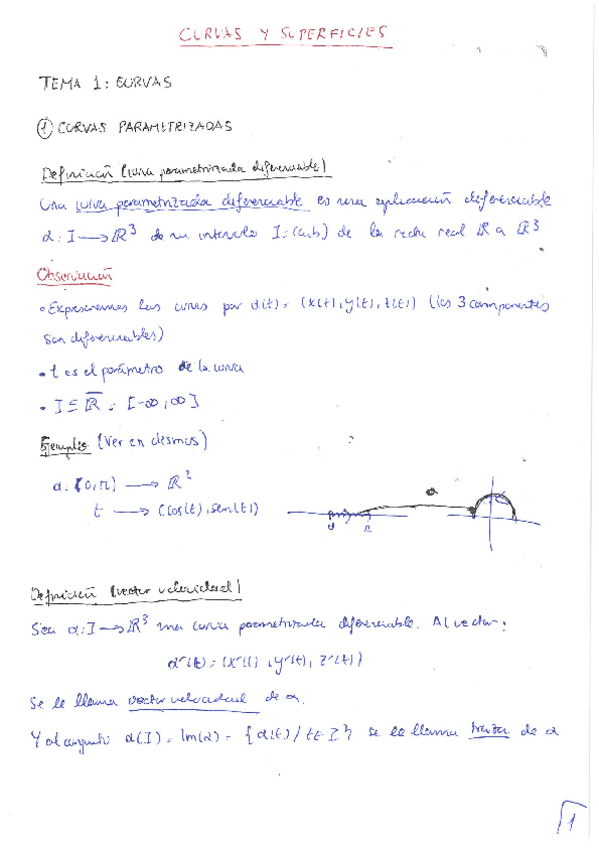 CURVAS Y SUPERFICIES
TEMA 1: CURVAS
① CURVAS PARAMETRIZADAS
Definición (curva parametrizada diferenciable)
Una curva parametrizada diferenciable es una aplicación diferenciable
α: I → ℝ³ de un intervalo I=(a,b) de la recta real ℝ a ℝ³
Observación
• Expresaremos las curvas por α(t) = (x(t), y(t), z(t)) (las 3 componentes
son diferenciables)
• t es el parámetro de la curva
• I ⊆ ℝ̅ = [-∞, ∞]
Ejemplo (Ver en desmos)
α: (0, π) → ℝ²
t → (cos(t), sen(t))
α
0 π
Definición (vector velocidad)
Sea α: I → ℝ³ una curva parametrizada diferenciable. Al vector:
α'(t) = (x'(t), y'(t), z'(t))
Se le llama vector velocidad de α.
Y al conjunto α(I) = Im(α) = {α(t) / t ∈ I} se le llama traza de α
1